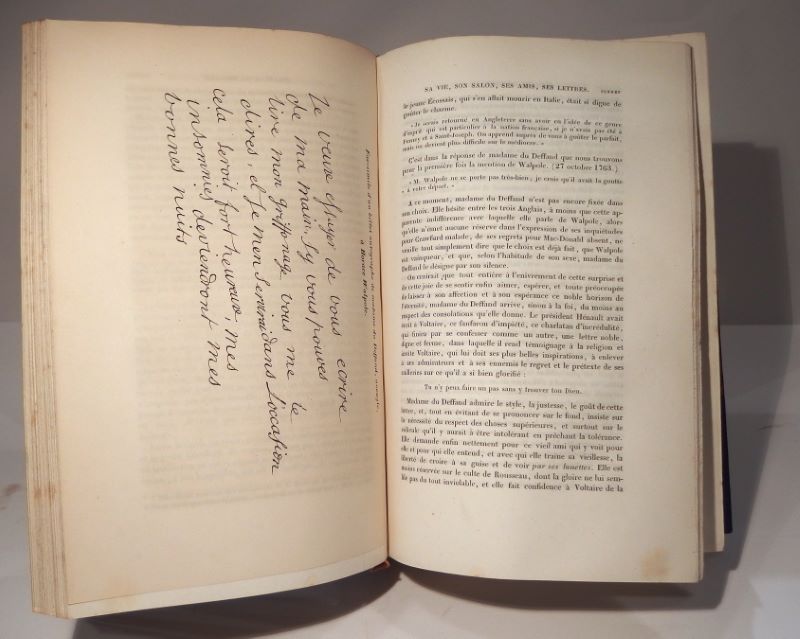 Je veux essayer de vous ecrire
de ma main, sy vous pouves
lire mon griffonage vous me le
dires, et je men serviraidans L'occasion
cela seroit fort heureux, mes
insomnies deviendront mes
bonnes nuits
Facsimile d'un billet autographe de madame du Deffand, aveugle,
à Horace Walpole.
SA VIE, SON SALON, SES AMIS, SES LETTRES.
le jeune Écossais, qui s'en allait mourir en Italie, était si digne de
goûter le charme.
« Je serais retourné en Angleterre sans avoir eu l'idée de ce genre
d'esprit qui est particulier à la nation française, si je n'avais pas été à
Ferney et à Saint-Joseph. On apprend auprès de vous à goûter le parfait,
mais on devient plus difficile sur le médiocre. »
C'est dans la réponse de madame du Deffand que nous trouvons
pour la première fois la mention de Walpole. (27 octobre 1765.)
« M. Walpole ne se porte pas très-bien, je crois qu'il avait la goutte
« à votre départ. »
A ce moment, madame du Deffand n'est pas encore fixée dans
son choix. Elle hésite entre les trois Anglais, à moins que cette ap-
parente indifférence avec laquelle elle parle de Walpole, alors
qu'elle n'met aucune réserve dans l'expression de ses inquiétudes
pour Crawfurd malade, de ses regrets pour MacDonald absent, ne
veuille tout simplement dire que le choix est déjà fait, que Walpole
est vainqueur, et que, selon l'habitude de son sexe, madame du
Deffand le désigne par son silence.
On croirait que tout entière à l'enivrement de cette surprise et
de cette joie de se sentir enfin aimer, espérer, et toute préoccupée
de laisser à son affection et à son espérance ce noble horizon de
l'éternité, madame du Deffand arrive, sinon à la foi, du moins au
respect des consolations qu'elle donne. Le président Hénault avait
écrit à Voltaire, ce fanfaron d'impiété, ce charlatan d'incrédulité,
qui finira par se confesser comme un autre, une lettre noble,
digne et ferme, dans laquelle il rend témoignage à la religion et
invite Voltaire, qui lui doit ses plus belles inspirations, à enlever
à ses admirateurs et à ses ennemis le regret et le prétexte de ses
railleries sur ce qu'il a si bien glorifié :
Tu n'y peux faire un pas sans y trouver ton Dieu.
Madame du Deffand admire le style, la justesse, le goût de cette
lettre, et, tout en évitant de se prononcer sur le fond, insiste sur
la nécessité du respect des choses supérieures, et surtout sur le
ridicule qu'il y aurait à être intolérant en prêchant la tolérance.
Elle demande enfin nettement pour ce vieil ami qui y voit pour
elle et pour qui elle entend, et avec qui elle traîne sa vieillesse, la
liberté de croire à sa guise et de voir par ses lunettes. Elle est
moins réservée sur le culte de Rousseau, dont la gloire ne lui sem-
ble pas du tout inviolable, et elle fait confidence à Voltaire de la